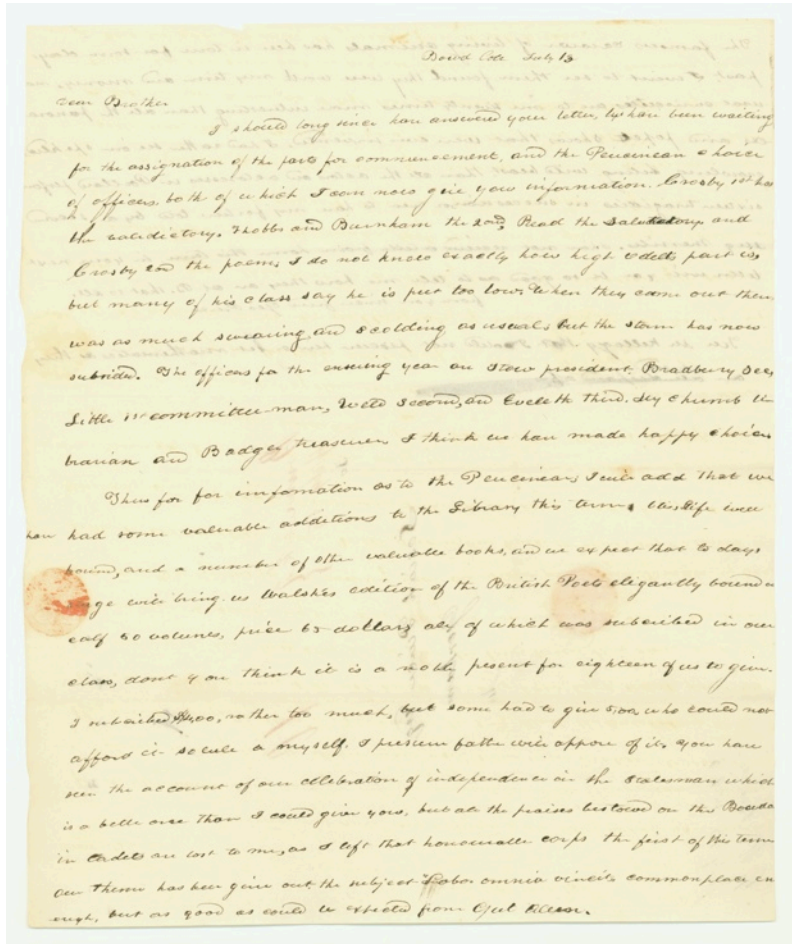 Bowd Coll July 13
Dear Brother
I should long since have answered your letter, but have been waiting
for the assignation of the parts for commencement, and the Peucinean choice
of officers, both of which I can now give you information. Crosby 1st has
the valedictory. Hobbs and Burnham the 2nd, Read the Salutatory and
Crosby 2nd the poem, I do not know exactly how high part is
but many of his class say he is put too low. When they came out there
was as much swearing and scolding as usual, but the storm has now
subsided. The officers for the ensuing year are Stow president, Bradbury Sec,
Little 1st committee man, Weld Second, and Eveleth third. My chumb li
brarian and Badger treasurer I think we have made happy choices
Thus far for imfomation as to the Peucinean, I will add that we
have had some valuable additions to the Library this term, life well
bound, and a number of other valuable books, and we expect that to days
stage will bring us Walshes edition of the British Poets elegantly bound in
calf 50 volumes, price 65 dollars all of which was subscribed in our
class, dont you think it is a noble present for eighteen of us to give.
I subscribed $4,00, rather too much, but some had to give 5,00 who could not
afford it so well as myself. I presume father will appove of it. You have
seen the account of our celebration of independence in the Statesman which
is a better one than I could give you, but all the praises bestowed on the Bowdo
in Cadets are lost to me, as I left that honourable corps the first of this term
our Theme has been given out the subject Labor omnia vincit, commonplace en
ough, but as good as could be expected from Gul Allen.